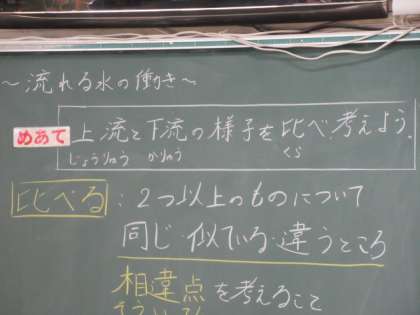 ～流れる水の働き～
めあて 上流と下流の様子を比べ、考えよう。
じょうりゅう かりゅう くら
比べる：２つ以上のものについて
同じ・似ている・違うところ
相違点を考えること